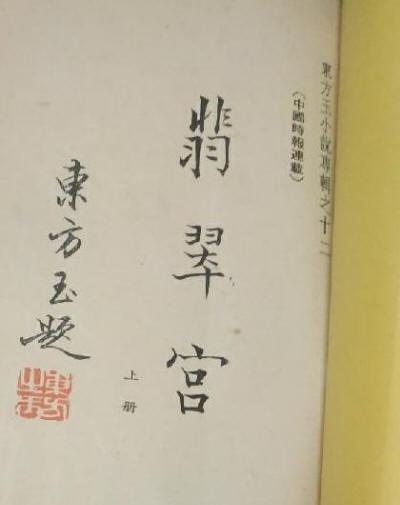 東方玉小說專輯之十二
（中國時報連載）
翡翠宮
上册
東方玉題